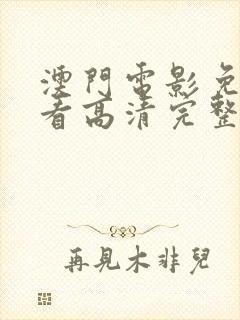 澳門電影免
看高清完整
再見木非兒